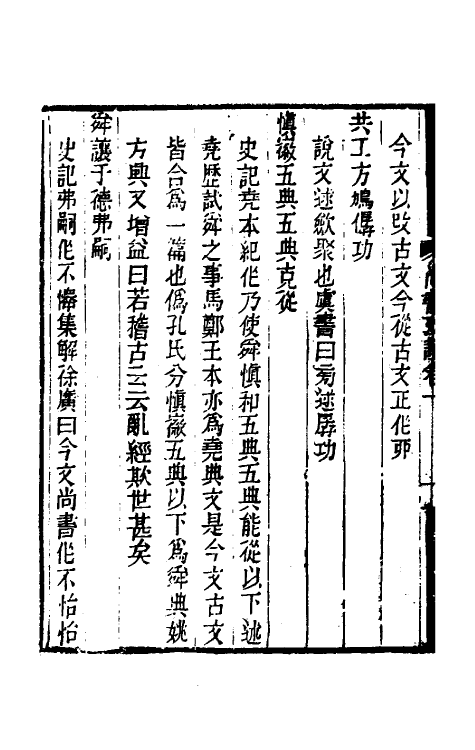 今文以改古文今從古文正作丣
共工方鳩僝功
說文逑斂聚也虞書曰㫄逑孱功
愼徽五典五典克從
史記堯本紀作乃使舜愼和五典五典能從以下述
堯歷試舜之事馬鄭王本亦爲堯典文是今文古文
皆合爲一篇也僞孔氏分愼徽五典以下爲舜典姚
方興又增益曰若稽古云云亂經欺世甚矣
舜讓于德弗嗣
史記弗嗣作不懌集解徐廣曰今文尚書作不怡怡